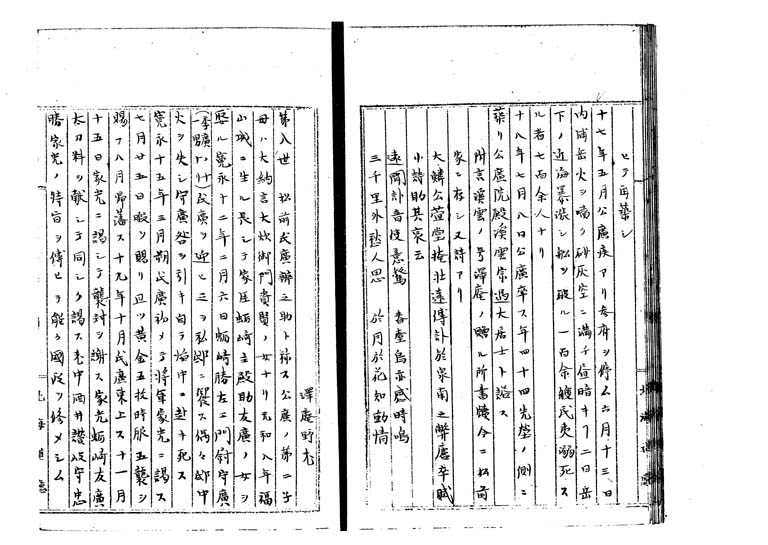 ヒテ再築シ
十七年五月公廣疾アリ参府ヲ停ム六月十三日
内浦岳火ヲ噴ク砂灰空ニ満チ昼暗キ丁二日岳
下ノ近海暴漲シ船ヲ破ル一百余艘民夷溺死ス
ル者七百余人ナリ
十八年七月八日公廣卒ス年四十四先塋ノ側ニ
葬リ公廣院殿溪雲宗遇大居士ト謚ス
附言溪雲ノ号澤庵ノ贈ル所書幅今ニ松前
家ニ存シ又詩アリ
大檀公萱堂掩壮遠傳訃於泉南之弊廬卒賦
小詩助其哀云
遠聞訃音使意驚 香臺烏亦感時鳴
三千里外愁人思 於月於花知動情
澤庵野衲
第八世 松前氏廣辨之助ト称ス公廣ノ第二子
母ハ大納言大炊御門資賢ノ女ナリ元和八年福
山城ニ生ル長シテ家臣蛎崎主殿助友廣ノ女ヲ
娶ル寛永十二年二月六日蛎崎勝左エ門尉守廣
氏廣ヲ迎ヒテ私邸ニ饗ス偶々邸中
火ヲ失シ守廣咎ヲ引キ自ラ焔中ニ赴キ死ス
寛永十五年三月朔氏廣初メテ将軍家光ニ謁ス
七月廿五日暇ヲ賜リ且ツ黄金五枚時服五襲ヲ
賜フ八月帰藩ス十九年十月氏廣東上ス十一月
十五日家光ニ謁シテ襲封ヲ謝ス家光蛎崎友廣
太刀料ヲ献シテ同シク謁ス老中酒井讃岐守忠
勝家光ノ特旨ヲ傳ヒテ能ク國政ヲ修メシム
北海道廳